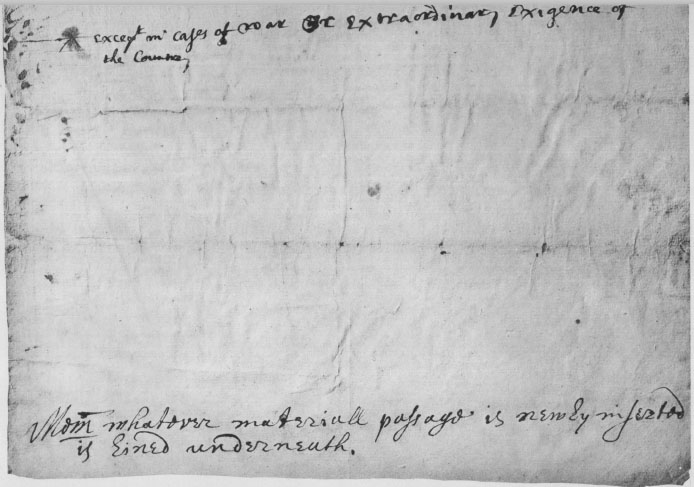 except in cases of war or Extraordinary Exigence of
the Country
Mem̄ whatever materiall passage is newly inserted
is Lined underneath.